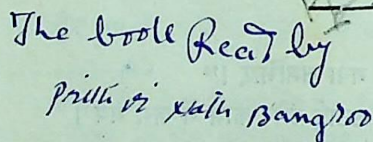 The book Read by
Prith vi nath Bangroo